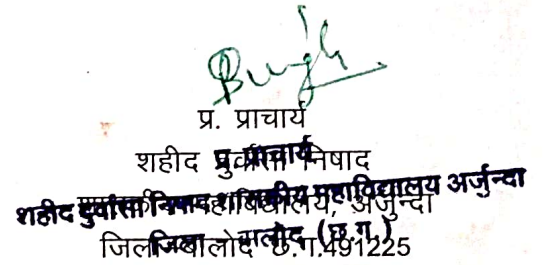 प्र. प्राचार्य
शहीद दुर्वासा निषाद
प्र. प्राचार्य
महाविद्यालय, अर्जुन्दा
शहीद दुर्वासा निषाद शासकीय महाविद्यालय अर्जुन्दा
जिला बालोद छ.ग.491225
जिला - बालोद (छ.ग.)